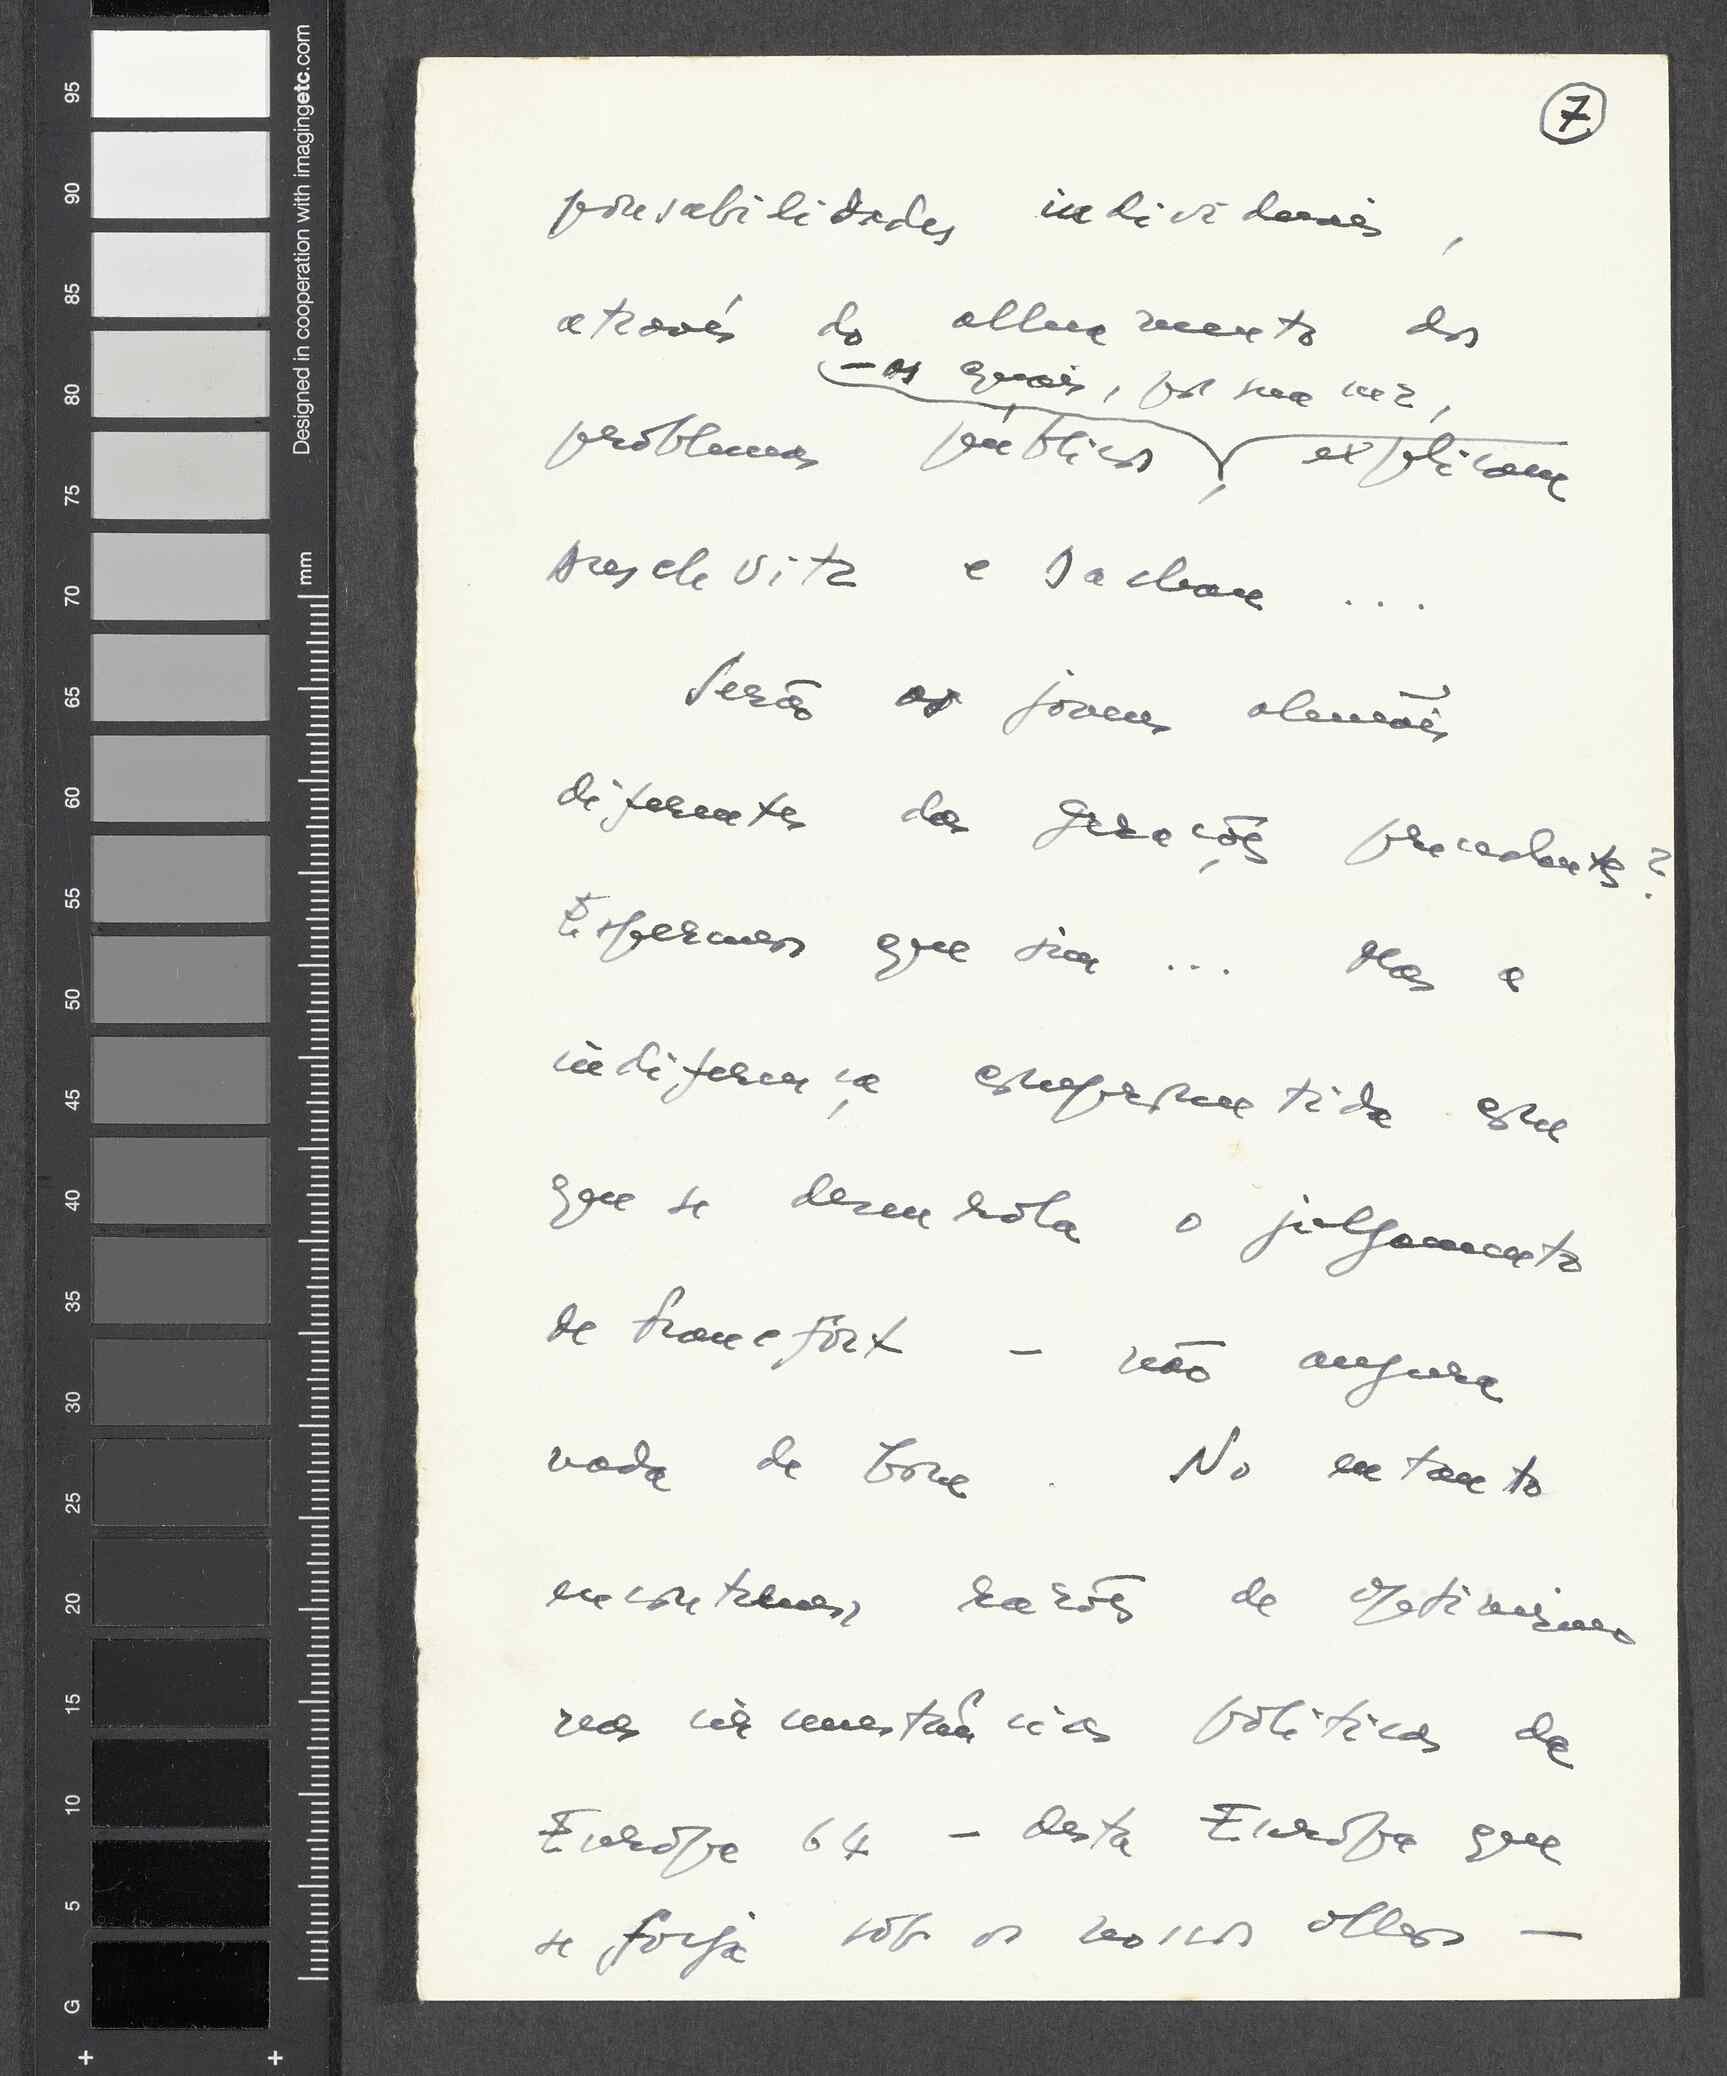 7
ponsabilidades individuais,
através do alheamento dos
- os quais, por sua vez,
problemas públicos, explicam
Auschvitz e Dachau ...
Serão os jovens alemãis
diferentes das gerações precedentes?
Esperemos que sim ... Mas a
indiferença em que
que se desenrola o julgamento
de Francfort - não augura
nada de bom. No entanto
encontremos razões de optimismo
nas circunstâncias políticas da
Európa 64 - desta Európa que
se forja sob os nossos olhos -
Designed in cooperation with imagingetc.com
mm
95
90
85
80
75
70
65
60
55
50
45
40
35
30
25
20
15
10
5
G